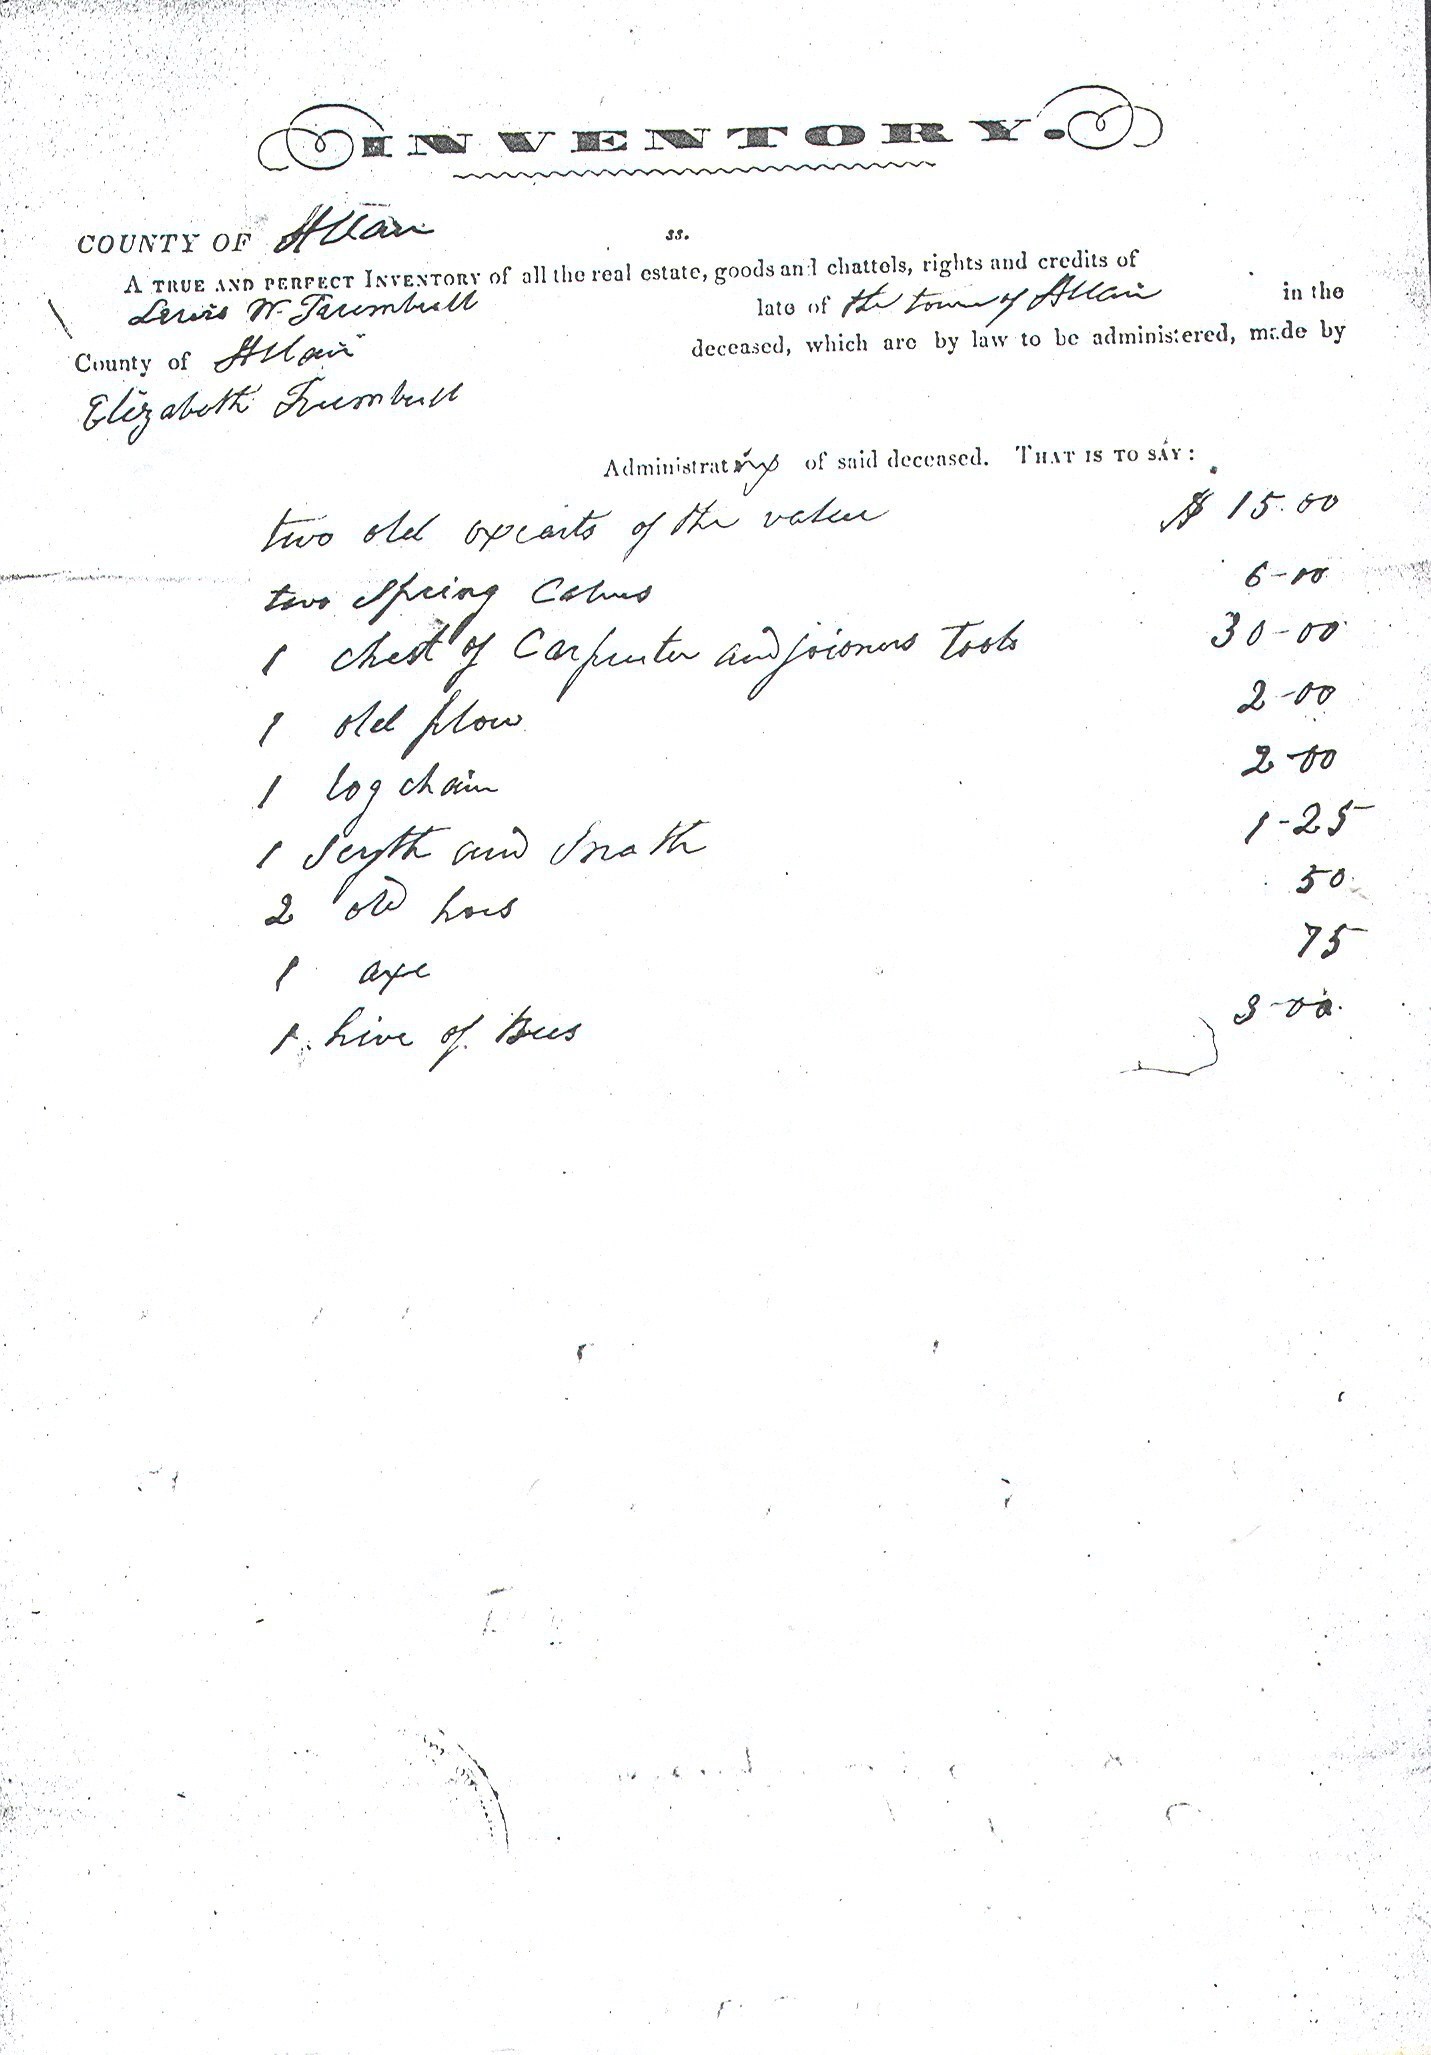 INVENTORY.
COUNTY OF St Clair ss.
A TRUE AND PERFECT INVENTORY of all the real estate, goods and chattels, rights and credits of
Lewis W. Trumbull late of the town of St Clair in the
County of St Clair deceased, which are by law to be administered, made by
Elizabeth Trumbull
Administratrix of said deceased. THAT IS TO SAY:
two old oxcarts of the value $ 15.00
two Spring Calves 6-00
1 chest of Carpenter and joiners Tools 30-00
1 old plow 2-00
1 log chain 2-00
1 Scyth and Snath 1-25
2 old hoes 50
1 axe 75
1 hive of Bees 3-00